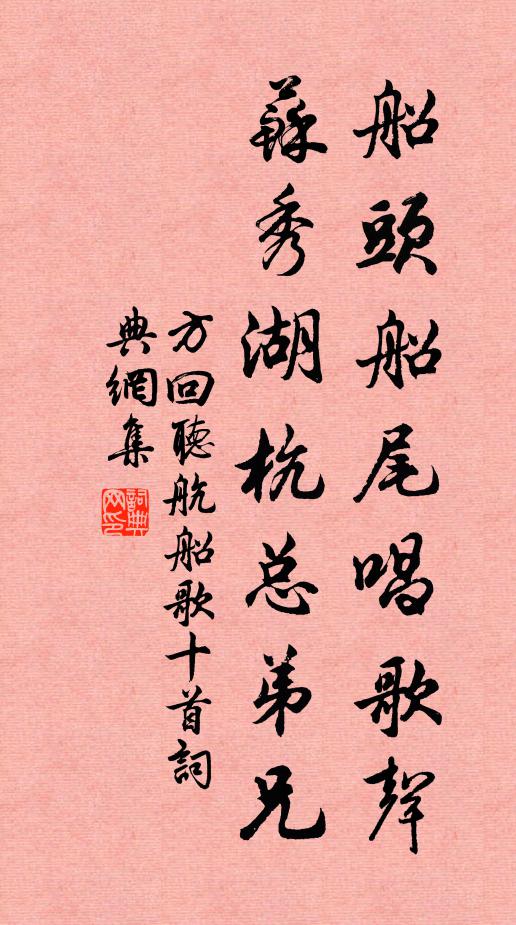 船頭船尾唱歌聲
蘇秀湖杭总弟兄
方回聽航船歌十首詞
典網集
詞典
网印